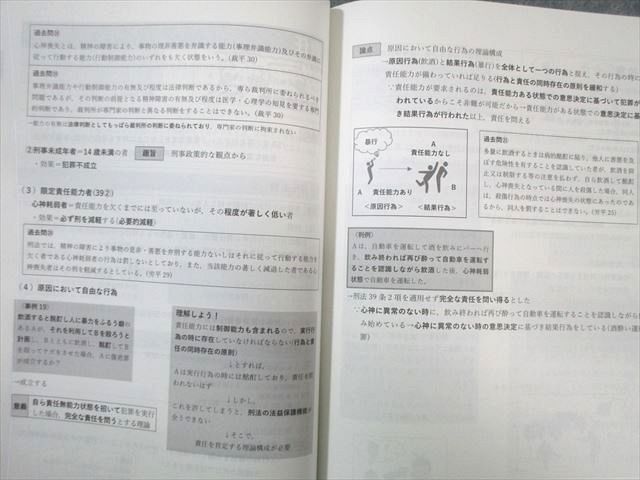 過去問⑱
心神喪失とは、精神の障害により、事物の理非善悪を弁識する能力(事理弁識能力)及びその弁識に
従って行動する能力(行動制御能力)のいずれをも欠く状態をいう。(裁平 30)
過去問⑲
事理弁識能力や行動制御能力の有無及び程度は法律判断であるから、専ら裁判所に委ねられるべき
問題であるが、その判断の前提となる精神障害の有無及び程度は医学・心理学の知見を要する専門
的判断であり、裁判所が専門家の判断と異なる判断をすることはできない。(裁平 30)
→能力の有無は法律判断としてもっぱら裁判所の判断に委ねられており、専門家の判断に拘束されない
②刑事未成年者=14歳未満の者 趣旨 刑事政策的な観点から
・効果=犯罪不成立
(3)限定責任能力者(39②)
心神耗弱者=責任能力を欠くまでには至っていないが、その程度が著しく低い者
・効果=必ず刑を減軽する(必要的減軽)
過去問⑳
刑法では、精神の障害により事物の是非・善悪を弁別する能力ないしはそれに従って行動する能力を
欠く者である心神耗弱者の行為は罰しないとしており、また、当該能力の著しく減退した者である心
神喪失者はその刑を軽減するとしている。(労平 29)
(4)原因において自由な行為
〈事例 19〉
飲酒すると酩酊し人に暴力をふるう癖の
あるAが、それを利用してBを殴ろうと
計画し、Bとともに飲酒し、酩酊してB
を殴ってケガをさせた場合、Aに傷害罪
が成立するか?
→成立する
意義 自ら責任無能力状態を招いて犯罪を実行
した場合、完全な責任を問うとする理論
理解しよう!
責任能力には制御能力も含まれるので、実行行
為の時に存在していなければならない(行為と責
任の同時存在の原則)
↓とすれば、
Aは実行行為の時には酩酊しており、責任を問
われないはず
↓しかし、
これを許してしまうと、刑法の法益保護機能が
全うできない
↓そこで、
責任を肯定する理論構成が必要
論点 原因において自由な行為の理論構成
→原因行為(飲酒)と結果行為(暴行)を全体として一つの行為と捉え、その行為の時に
責任能力が備わっていれば足りる(行為と責任の同時存在の原則を緩和する)
∵責任能力が要求されるのは、責任能力ある状態での意思決定に基づいて犯罪が
われているからこそ非難が可能だから→責任能力がある状態での意思決定に基
き結果行為が行われた以上、責任を問える
暴行
A
責任能力あり
<原因行為>
A
責任能力なし
B
<結果行為>
過去問㉑
多量に飲酒するときは病的酩酊に陥り、他人に害悪を及
ぼす危険性を有することを認識していた者が、飲酒を抑
止又は制限する等の注意を払わず、自ら飲酒して酩酊
し、心神喪失となっている間に人を殺傷した場合、同人
は、殺傷行為の時点では心神喪失の状態にあったのであ
るから、同人を罰することはできない。(労平 25)
〈判例〉
Aは、自動車を運転して酒を飲みにバーへ行
き、飲み終われば再び酔って自動車を運転す
ることを認識しながら飲酒した後、心神耗弱
状態で自動車を運転した。
→刑法 39 条 2 項を適用せず完全な責任を問い得るとした
∵心神に異常のない時に、飲み終われば再び酔って自動車を運転することを認識しながら
み始めている→心神に異常のない時の意思決定に基づき結果行為をしている(酒酔い運
罪)